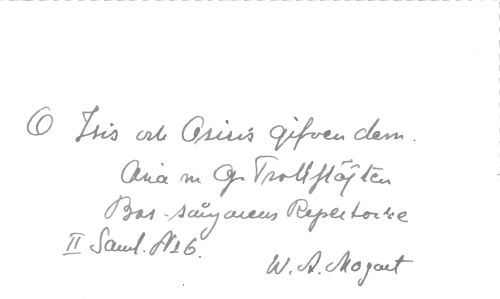 O Isis och Osiris gifven dem.
Aria m Op Trollflöjten
Bas-sångarens Repertoire
II Saml. No 6.
W. A. Mozart